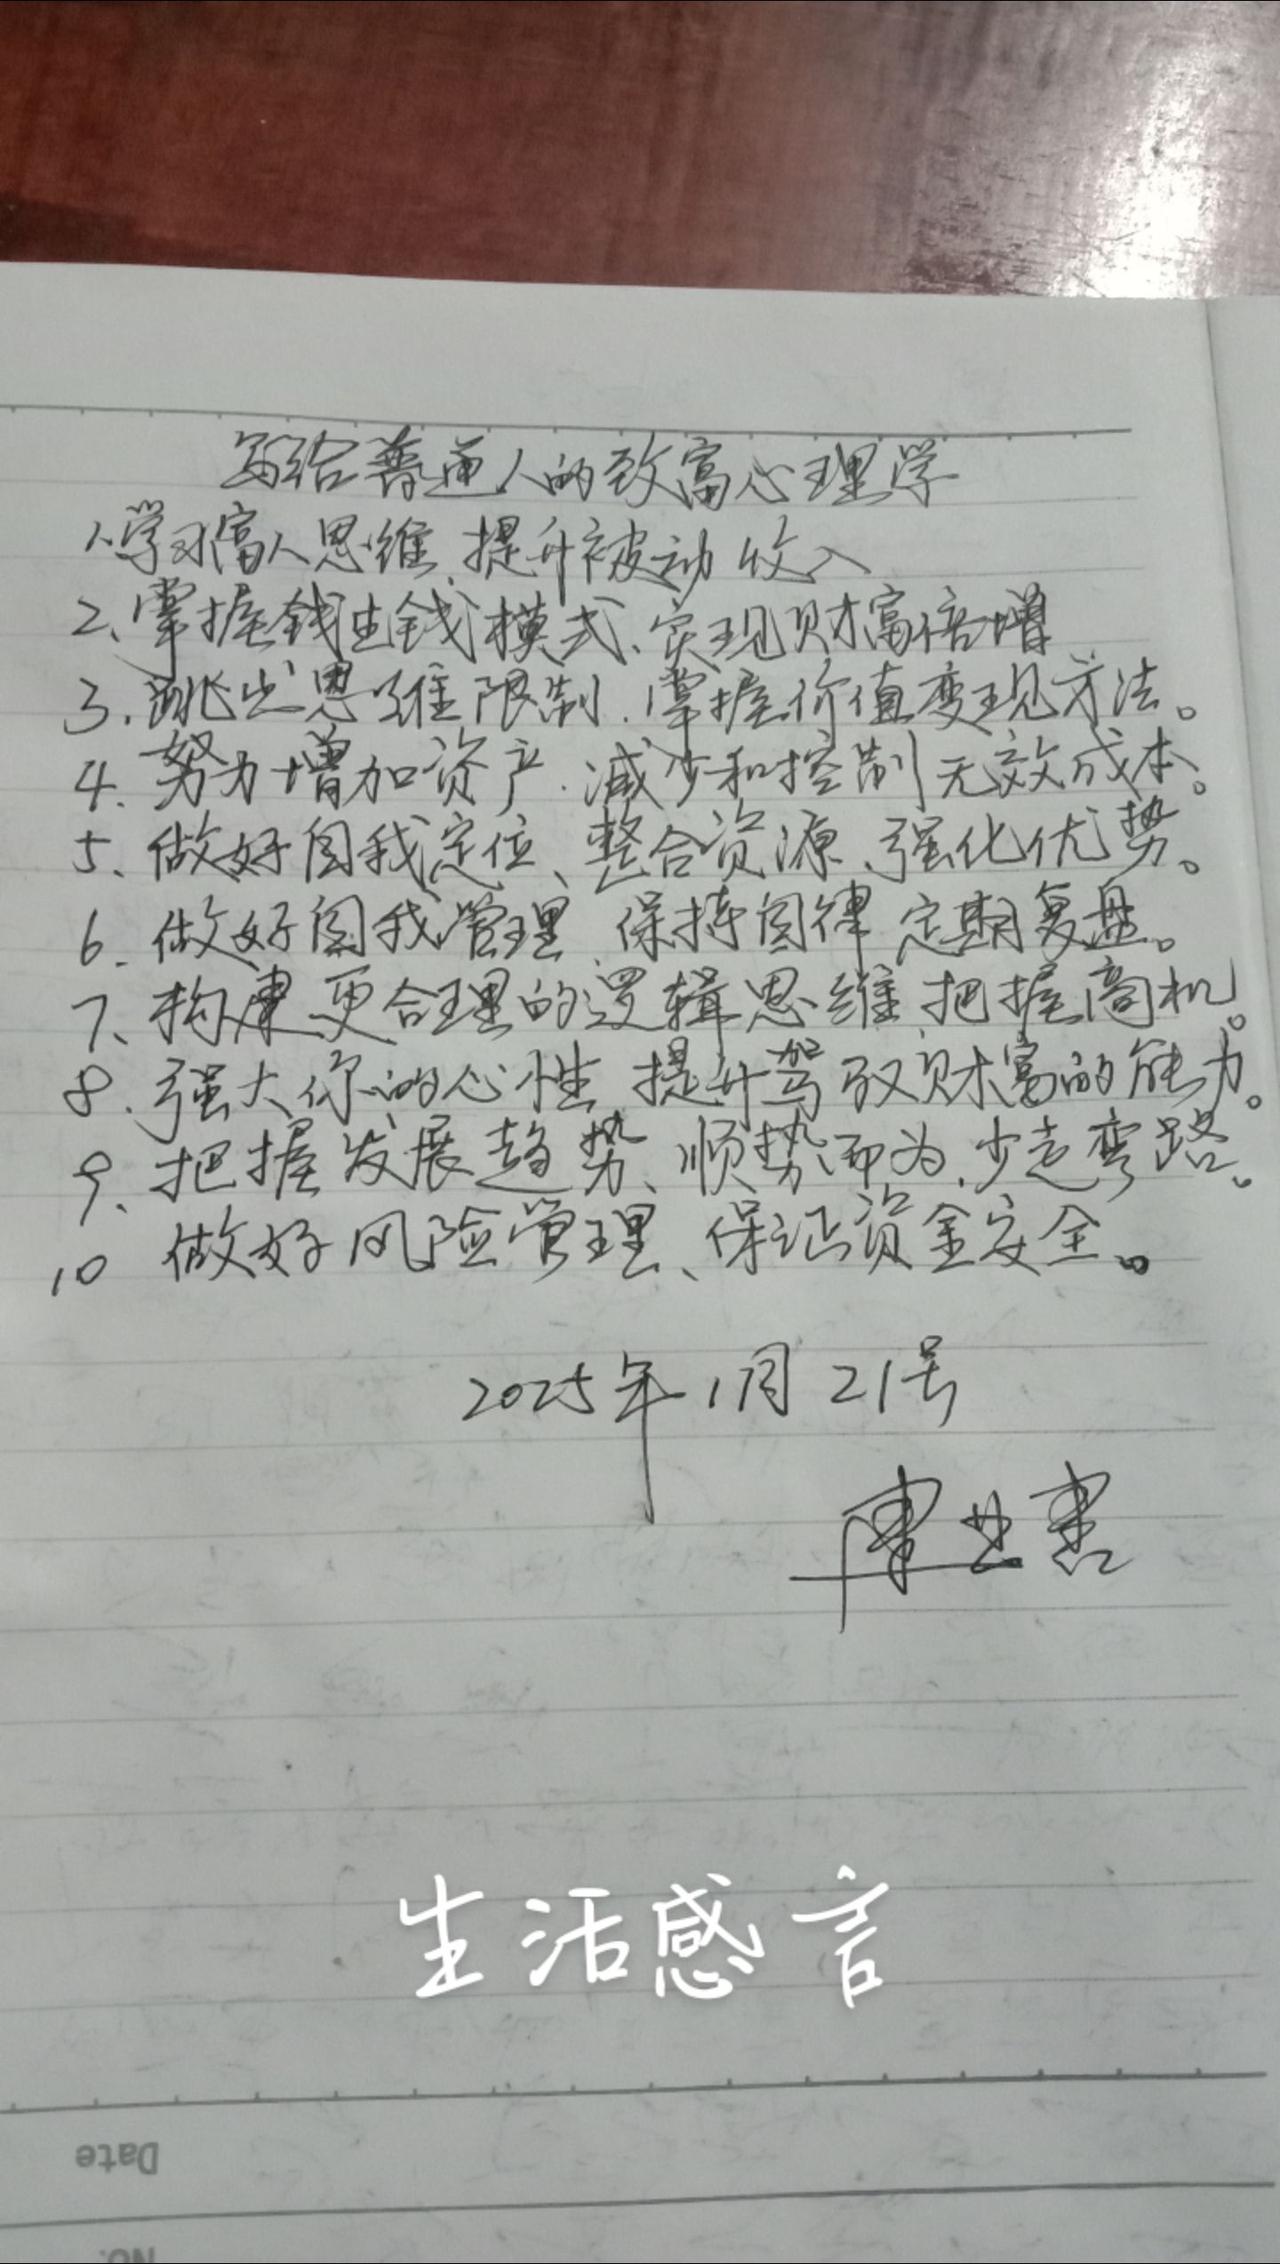 写给普通人的致富心理学
1、学习富人思维、提升被动收入
2、掌握钱生钱模式、实现财富倍增
3、跳出思维限制、掌握价值变现方法。
4、努力增加资产、减少和控制无效成本。
5、做好自我定位、整合资源、强化优势。
6、做好自我管理、保持自律、定期复盘。
7、构建更合理的逻辑思维、把握商机。
8、强大你的心性、提升驾驭财富的能力。
9、把握发展趋势、顺势而为、少走弯路。
10 做好风险管理、保证资金安全。
2025年1月21号
生活感言
Date
No.